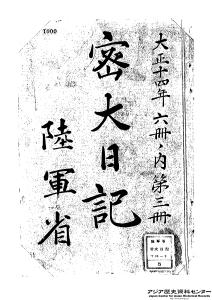 1000
大正十四年 六冊ノ内第三冊
密大日記
陸軍省
5
アジア歴史資料センター
Japan Center for Asian Historical Records